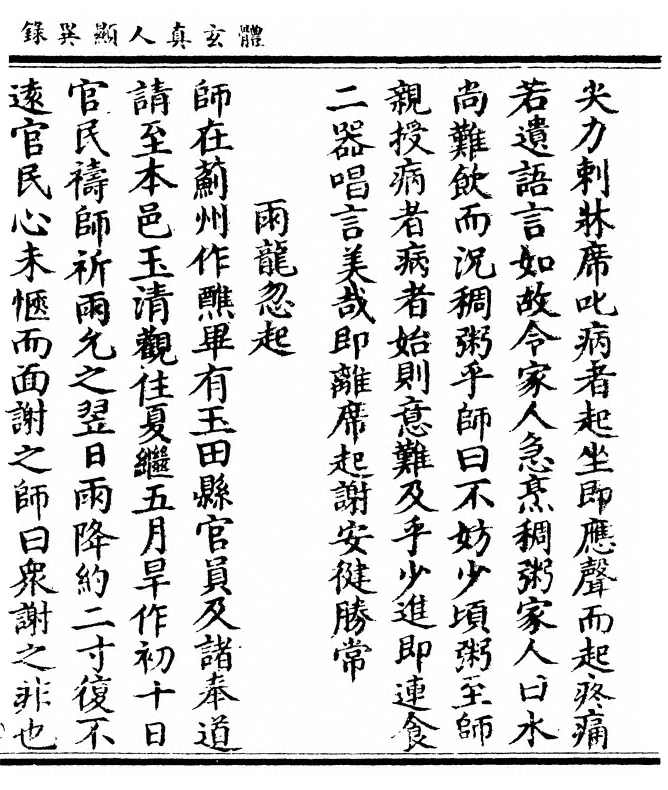 體玄真人顯異錄
尖力刺牀席叱病者起坐即應聲而起疼痛
若遺語言如故令家人急烹稠粥家人曰水
尚難飲而況稠粥乎師曰不妨少頃粥至師
親授病者病者始則意難及乎少進即連食
二器唱言美哉即離席起謝安健勝常
雨龍忽起
師在薊州作醮畢有玉田縣官員及諸奉道
請至本邑玉清觀住夏繼五月旱作初十日
官民禱師祈雨允之翌日雨降約二寸復不
遠官民心未愜而面謝之師曰衆謝之非也